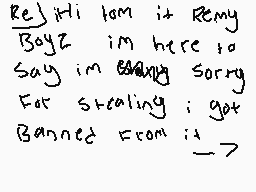 Re] Hi tom it Remy
Boyz im here to
say im sorry
For stealing i got
Banned From it